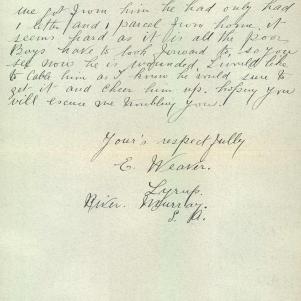 we got from him he had only had
1 letter and 1 parcel from home. it
seems hard as it is all the poor
Boys have to look forward to, so you
see now he is wounded, I would like
to Cable him as I know he would sure to
get it and cheer him up. hoping you
will escuse me troubling you.
Your's respectfully
E. Weaver.
Lyrup.
River. Murray.
S. A.